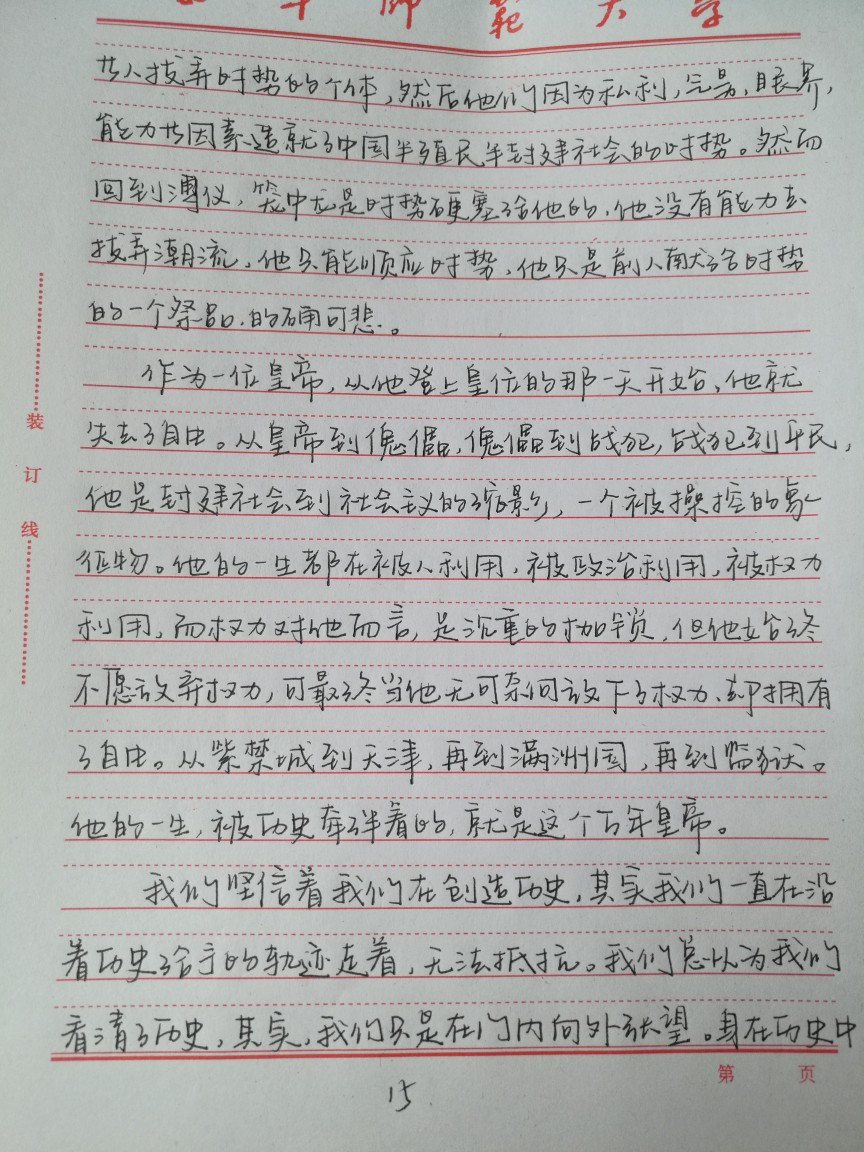 师范大学
廿人拔弄时势的个体，然后他们因为私利，完景，眼界，
能力廿因素造就了中国半殖民半封建社会的时势。然而
回到溥仪，笼中龙是时势硬塞给他的，他没有能力去
拔弄潮流，他只能顺应时势，他只是前人献给时势
的一个祭品，的确可悲。
作为一位皇帝，从他登上皇位的那一天开始，他就
失去了自由。从皇帝到傀儡，傀儡到战犯，战犯到平民，
他是封建社会到社会主义的缩影，一个被操控的象
征物。他的一生都在被人利用，被政治利用，被权力
利用，而权力对他而言，是沉重的枷锁，但他始终
不愿放弃权力，可最终当他无可奈何放下了权力、却拥有
了自由。从紫禁城到天津，再到满洲国，再到监狱。
他的一生，被历史牵绊着的，就是这个万年皇帝。
我们坚信着我们在创造历史，其实我们一直在沿
着历史给予的轨迹走着，无法抵抗。我们总以为我们
看清了历史，其实，我们只是在门内向外张望。身在历史中
装
订
线
第 页
15